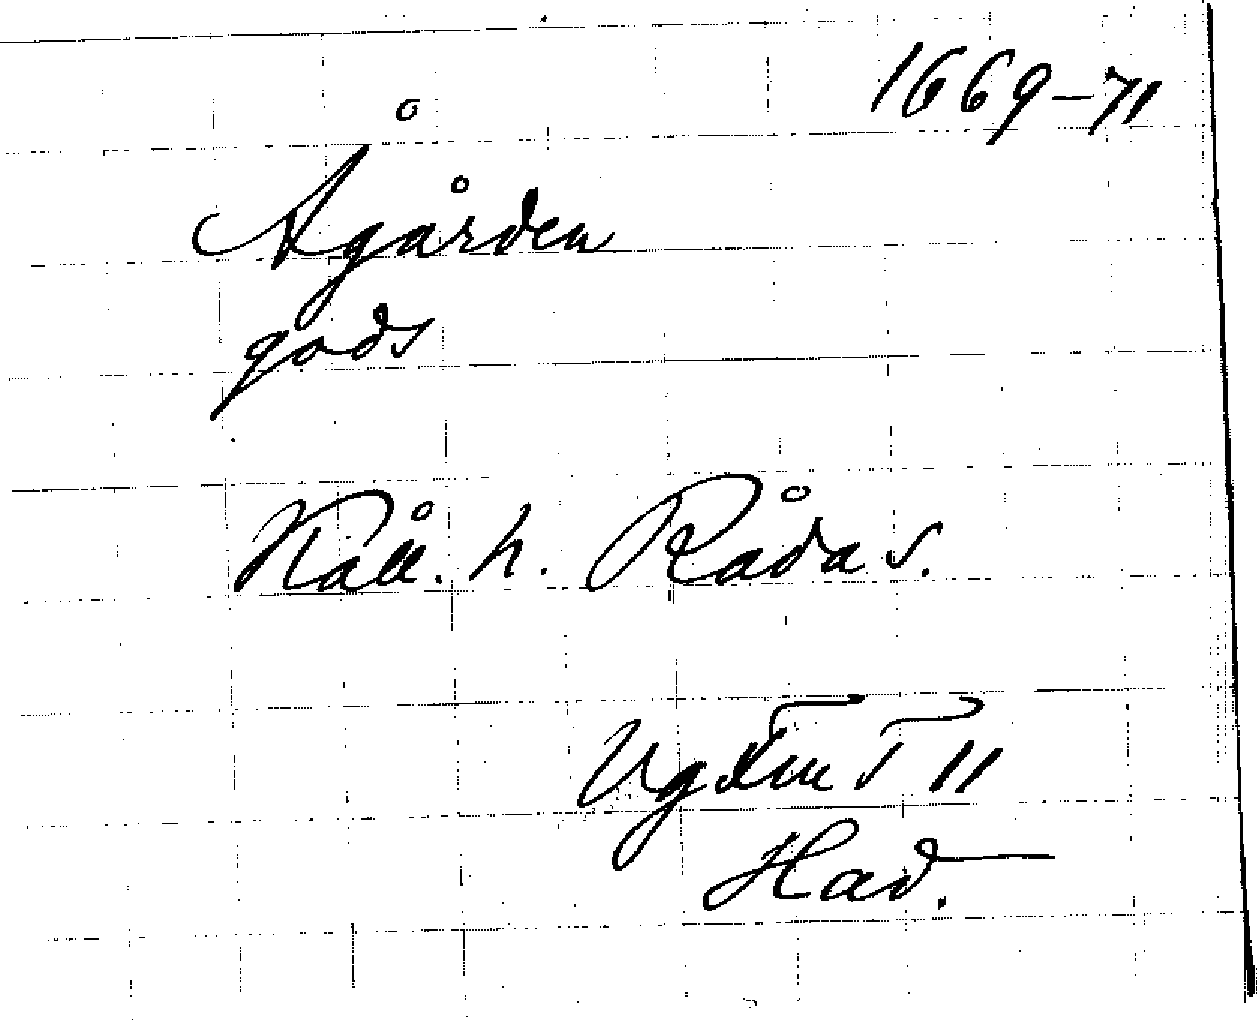 1669-71
Ågården
gods
Kåll. h. Råda s.
Ug Tm T 11
Had.